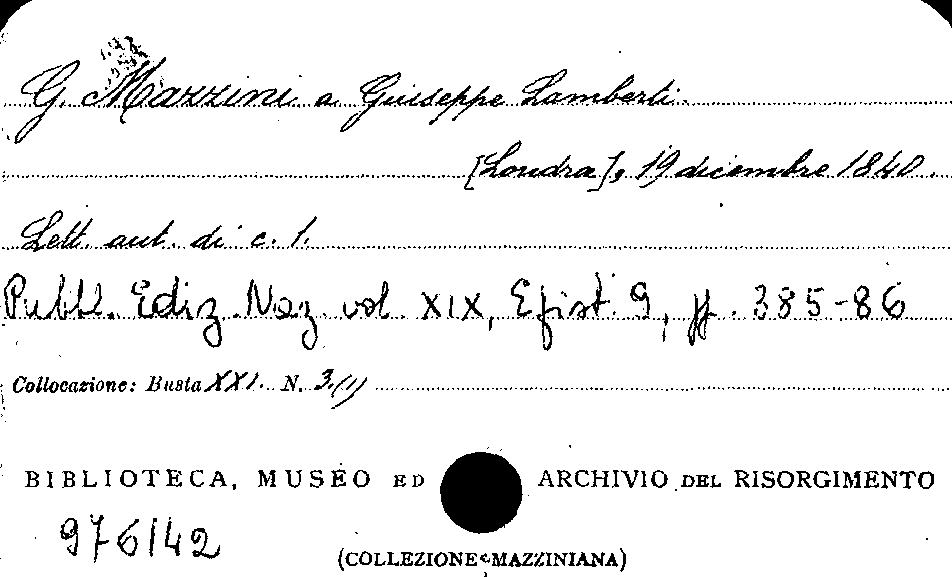 G. Mazzini a Giuseppe Lamberti.
[Londra], 19 dicembre 1840.
Lett. aut. di c. 1.
Pubbl. Ediz. Naz. vol. XIX, Epist. 9, pp. 385-86
Collocazione: Busta XXI. N. 3.(1)
BIBLIOTECA, MUSEO ED ARCHIVIO DEL RISORGIMENTO
976/42
(COLLEZIONE MAZZINIANA)